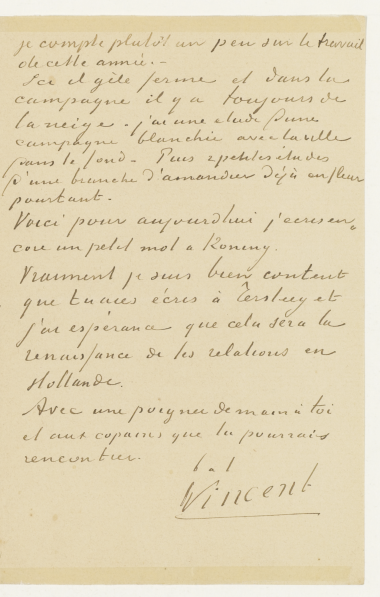 je compte plutôt un peu sur le travail
de cette année. –
Ici il gèle ferme et dans la
campagne il y a toujours de
la neige – j'ai une etude d'une
campagne blanchie avec la ville
dans le fond – Puis 2 petites études
d'une branche d'amandier déjà en fleur
pourtant –
Voici pour aujourdhui j'ecris en„
core un petit mot a Koning.
Vraiment je suis bien content
que tu aies écris à Tersteeg et
j'ai espérance que cela sera la
renaissance de tes relations en
Hollande.
Avec une poignee de main à toi
et aux copains que tu pourrais
rencontrer.
t. à t.
Vincent